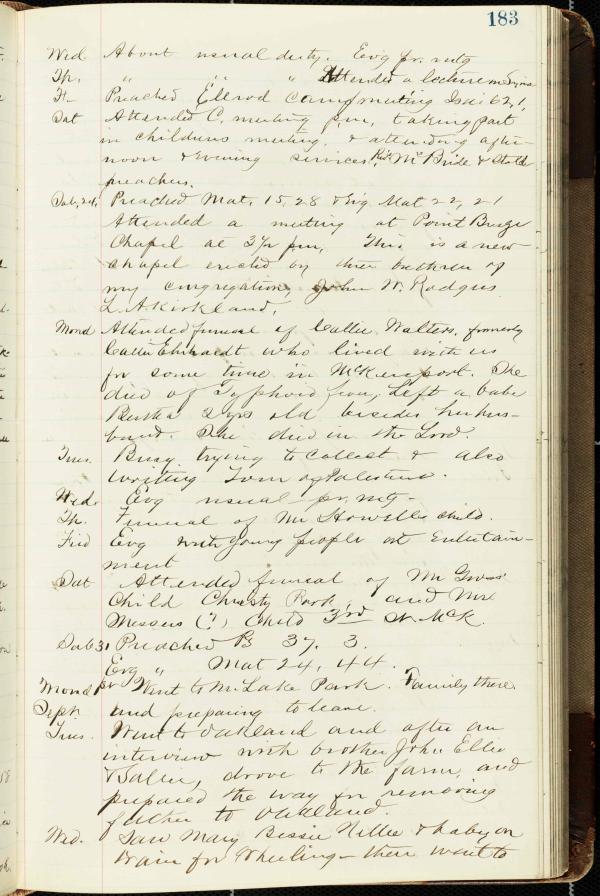 183
Wed About usual duty. Evg pr. mtg
Th. " " " Attended a lecture on
Fr Preached Elrod Camp meeting Isai 62, 1,
Sat Attended C, meeting p,m, taking part
in childrens meeting, & attending after-
noon & Evening services, Rev. McBride & Stold
preachers.
Sab, 24, Preached Mat, 15, 28 & Evg Mat 22, 21
Attended a meeting at Point Breeze
Chapel at 3½ pm, This is a new
chapel erected by three brethren of
my congregation, John W. Rodgers
L. A Kirkland,
Mond Attended funeral of Callie Walters, formerly
Callie Ehrhardt who lived with us
for some time in McKeesport. She
died of Typhoid fever, Left a babe
Bertha 2 yrs old besides her hus-
band. She died in the Lord.
Tues. Busy trying to collect & also
writing Tour of Palestine.
Wed. Evg usual pr. mtg-
Th. Funeral of Mr Howells child.
Frid Evg with young people at Entertain-
ment
Sat Attended funeral of Mr Gross'
Child Christy Park, and Mrs
Messers (?) Child 3rd St. McK.
Sab 31 Preached Ps 37. 3.
Evg " Mat 24, 44.
Mond Went to Mt Lake Park. Family there
Sept and preparing to leave.
Tues. Went to Oakland and after an
interview with brother John Ellie
& Sallie, drove to the farm, and
prepared the way for removing
father to Oakland.
Wed. Saw Mary Bessie Nellie & baby on
train for Wheeling - then went to